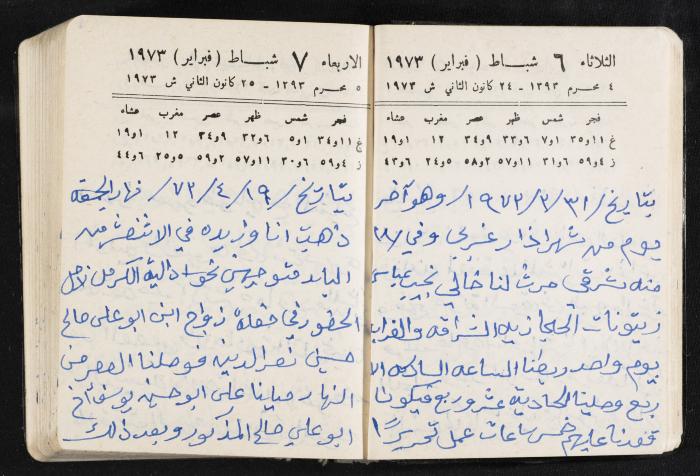 الثلاثاء ٦ شباط ( فبراير ) ١٩٧٣
٤ محرم ١٣٩٣ - ٢٤ كانون الثاني ش ١٩٧٣
فجر شمس ظهر عصر مغرب عشاء
غ ١١و٣٥ ١و٧ ٦و٣٣ ٩و٣٤ ١٢ ١و١٩
ز ٤و٥٩ ٦و٣١ ١١و٥٧ ٢و٥٨ ٥و٢٤ ٦و٤٣
بتاريخ /٣١/ ٣/ ١٩٧٣/ وهو آخر
يوم من شهر اذار غربي وفي /١٨
منه شرقي حرث لنا خالي نجيب عباس
زيتونات الحجازيه الشراقه والغراب
بيوم واحد ربطنا الساعه السادسه الا
ربع وصلينا الحاديه عشر وربع فيكونا
قعدنا عليهم خمس ساعات عمل تحريرًا
الاربعاء ٧ شباط ( فبراير ) ١٩٧٣
٥ محرم ١٣٩٣ - ٢٥ كانون الثاني ش ١٩٧٣
فجر شمس ظهر عصر مغرب عشاء
غ ١١و٣٤ ١و٥ ٦و٣٢ ٩و٣٤ ١٢ ١و١٩
ز ٤و٥٩ ٦و٣٠ ١١و٥٧ ٢و٥٩ ٥و٢٥ ٦و٤٤
بتاريخ /١٩/ ٤/ ٧٣/ نهار الجمعه
ذهبت انا وزيده في الاثنعش من
البلد متوجهين نحو دالية الكرمل لاجل
الحضور في حفلة زواج ابن ابو علي صالح
حسين نصر الدين فوصلنا العصر من
النهار ميلنا على ابو حسين يوسف أخ
ابو علي صالح المذكور وبعد ذلك